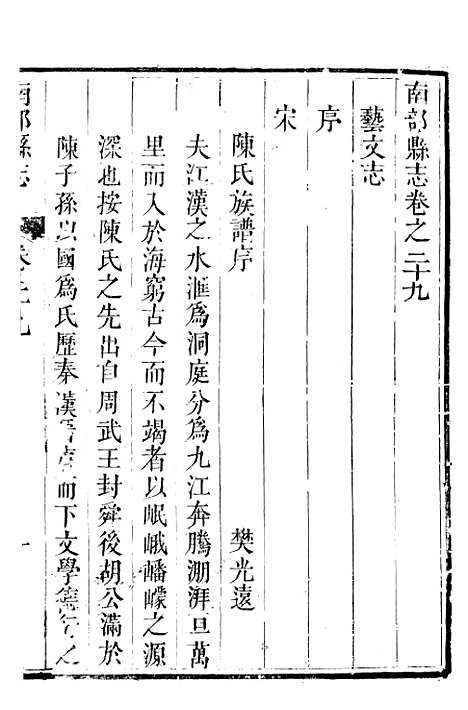 南部縣志卷之二十九
藝文志
序
宋
陳氏族譜序 樊光遠
夫江漢之水滙爲洞庭分爲九江奔騰淜湃亘萬
里而入於海窮古今而不竭者以岷峨嶓嶸之源
深也按陳氏之先出自周武王封舜後胡公滿於
陳子孫以國爲氏歷秦漢晉 而下文學 之
南部縣志 卷二十九 一